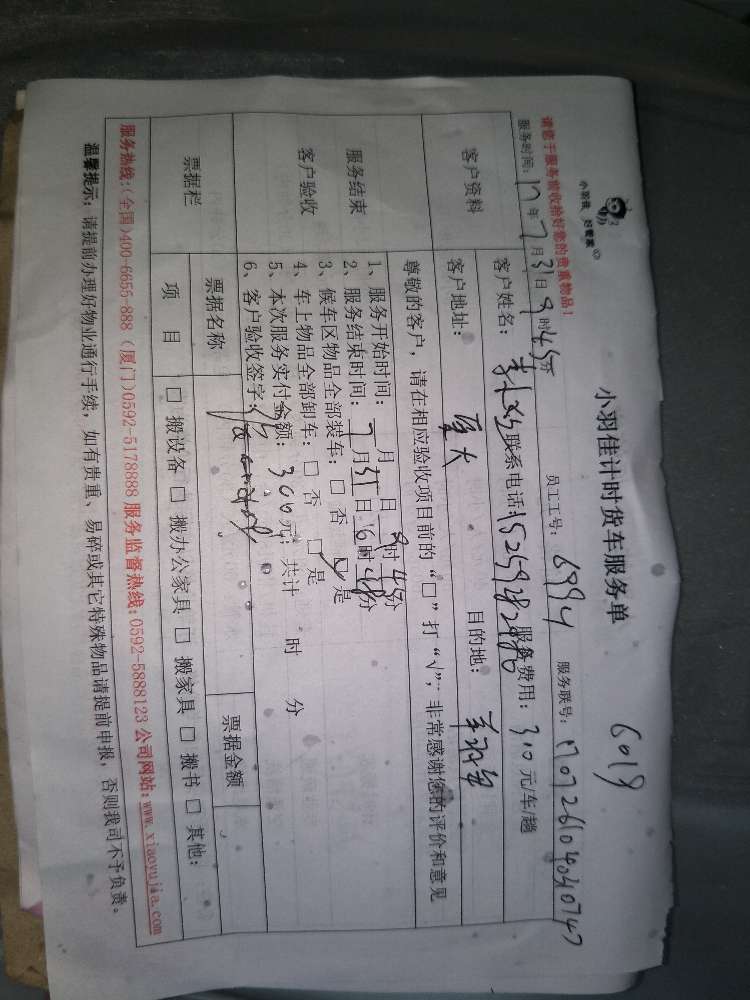 小羽佳 好管家
小羽佳计时货车服务单
6019
请您于服务前收拾好您的贵重物品！
员工工号：6994
服务联号：17072610404074
服务时间：17年7月31日9时45分
客户资料
客户姓名：
联系电话：
服务费用：310元/车/趟
客户地址：
目的地：
尊敬的客户，请在相应验收项目前的“□”打“√”；非常感谢您的评价和意见
服务结束
客户验收
1、服务开始时间： 月 日 9时45分
2、服务结束时间：7月31日16时 分
3、候车区物品全部装车：□ 否 □ 是
4、车上物品全部卸车：□ 否 □ 是
5、本次服务实付金额：300元；共计 时 分
6、客户验收签字：
票据栏
票据名称
票据金额
项 目
□ 搬设备 □ 搬办公家具 □ 搬家具 □ 搬书 □ 其他：
服务热线：(全国)400-6655-888 (厦门)0592-5178888 服务监督热线：0592-5888123 公司网站：www.xiaoyujia.com
温馨提示：请提前办理好物业通行手续，如有贵重、易碎或其它特殊物品请提前申报，否则我司不予负责。